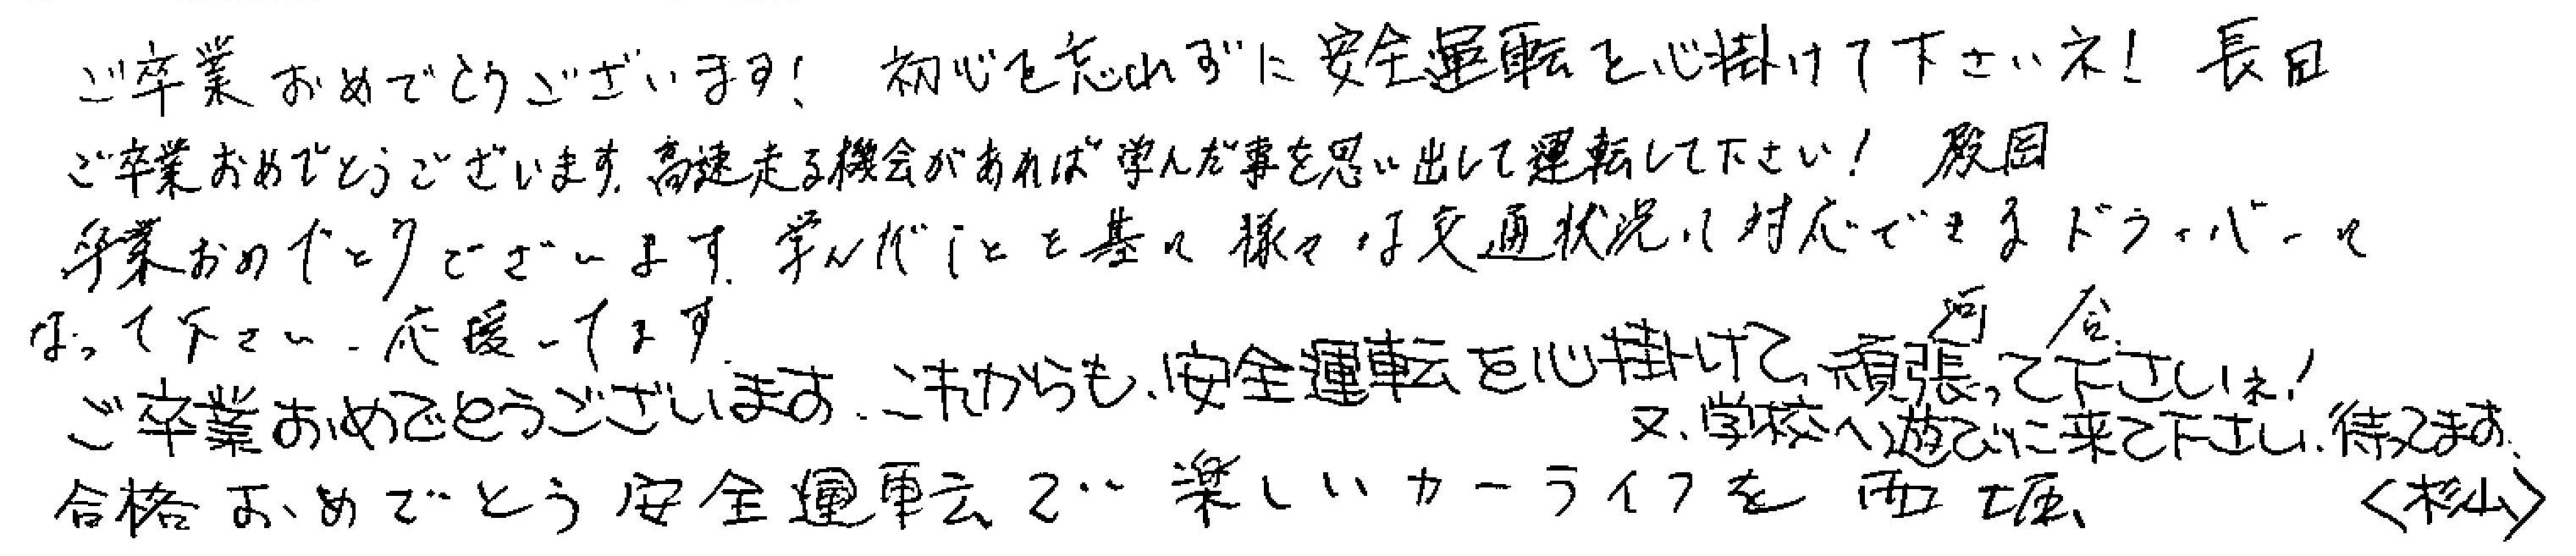 ご卒業おめでとうございます! 初心を忘れずに安全運転を心掛けて下さいネ! 長田
ご卒業おめでとうございます.高速走る機会があれば学んだ事を思い出して運転して下さい! 殿岡
卒業おめでとうございます.学んだことを基に様々な交通状況に対応できるドライバーに
なって下さい.応援してます. 河合
ご卒業おめでとうございます.これからも、安全運転を心掛けて、頑張って下さいネ!
又、学校へ遊びに来て下さい.待ってます.
<杉山>
合格おめでとう 安全運転で 楽しいカーライフを 西堀